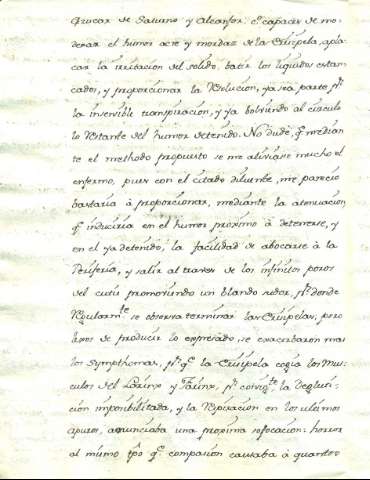 Azucar de Saturno y Alcanfor. Es capaces de mo-
derar el humor acre y mordaz de la Erisipela, apla-
car la irritacion del solido, batir los liquidos estan-
cados, y proporcionar la Resolucion, ya sea parte pr
la insensible transpiracion, y ya bolviendo al circulo
lo Restante del humor detenido. No dudé, qe median
te el methodo propuesto se me aliviase mucho el
enfermo, pues con el citado diluente, me pareció
bastaria á proporcionar, mediante la atenuacion
qe induciria en el humor proximo à detenerse, y
en el ya detenido, la facilidad de abocarse à la
Periferia, y salir al traves de los infinitos poros
del cutis promoviendo un blando sudor, pr donde
Regularmte se observa terminar las Erisipelas, pero
lexos de producir lo expresado, se exacerbaron mas
los Symphomas, pr qe la Erisipela cogia los Mus-
culos del Larinx y Farinx, pr consigte la deglu-
cion imposibilitada, y la Respiracion en los ultimos
apuros, anunciaba una proxima sofocacion: horror
al mismo tpo qe compasion causaba à quantos